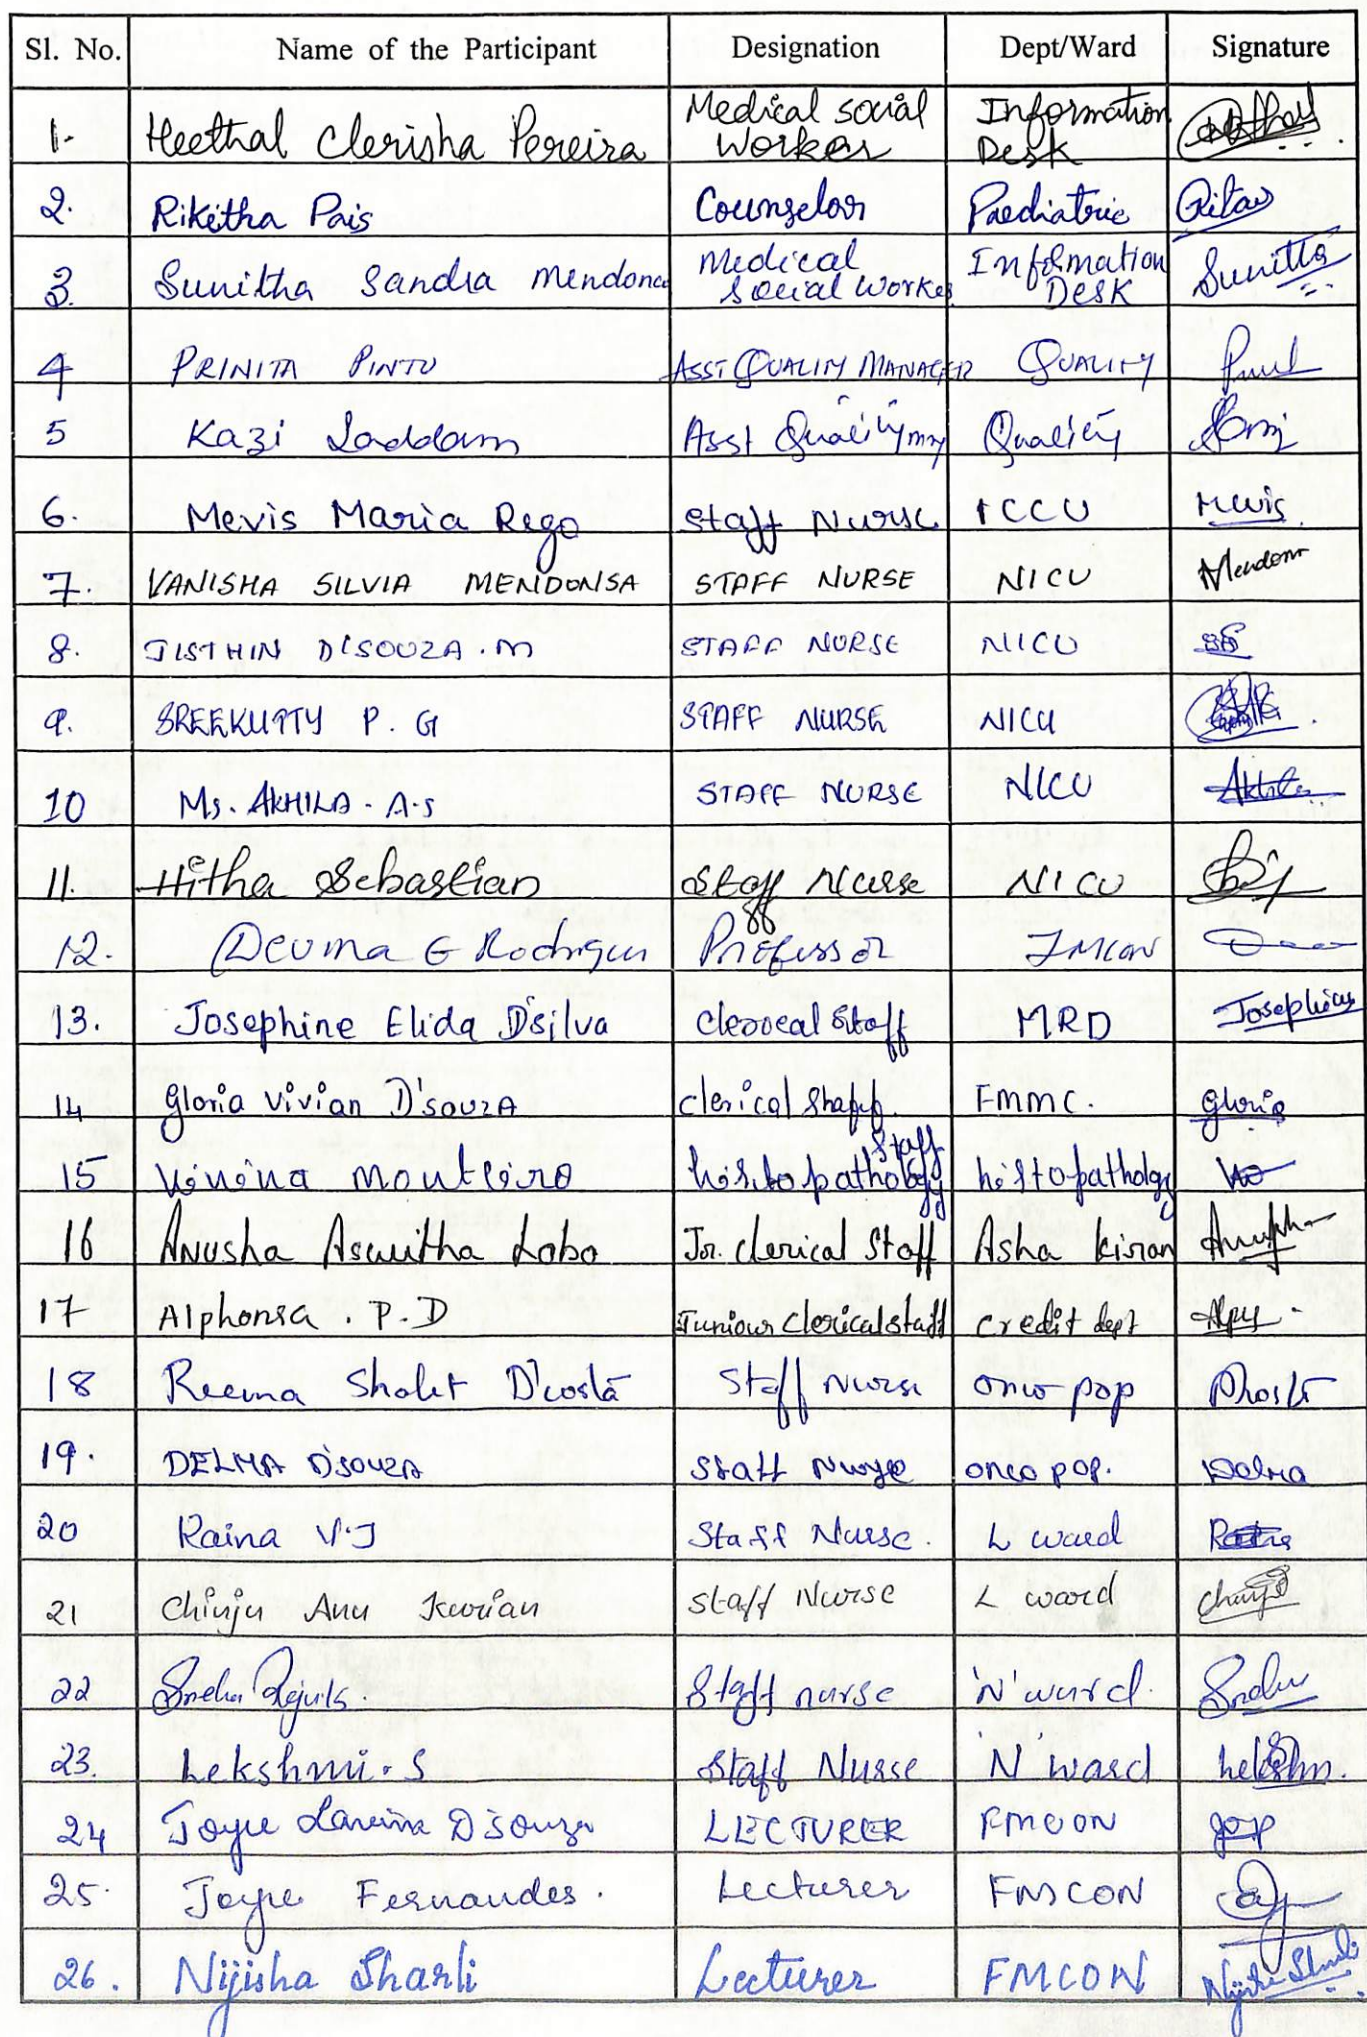 Sl. No. Name of the Participant Designation Dept/Ward Signature
1. Heethal Clerisha Pereira Medical social Worker Information Desk
2. Rikitha Pais Counselor Paediatric
3. Sunitha Sandra Mendonca Medical Social Worker Information Desk Sunitha
4 PRINITA PINTO ASST QUALITY MANAGER QUALITY
5 Kazi Saddam Asst Quality mng Quality
6. Mevis Maria Rego Staff Nurse ICCU Mevis
7. VANISHA SILVIA MENDONSA STAFF NURSE NICU
8. JISTHIN D'SOUZA.M STAFF NURSE NICU
9. SREEKUTTY P. G STAFF NURSE NICU
10 Ms. AKHILA. A.S STAFF NURSE NICU
11. Hitha Sebastian Staff Nurse NICU
12. Devina E Rodrigues Professor FMCON
13. Josephine Elida D'silva clerical staff MRD Josephine
14 Gloria Vivian D'souza clerical Staff. FMMC. Gloria
15 Vinina Monteiro histopathology Staff histopatholgy
16 Anusha Aswitha Lobo Jr. clerical Staff Asha kiran
17 Alphonsa . P. D Juniour Clerical staff credit dept
18 Reema Sholet D'costa Staff Nurse onco pop
19. DELMA D'SOUZA Staff Nurse onco pop. Delma
20 Raina V.J Staff Nurse. L ward
21 Chinju Anu Kurian Staff Nurse L ward
22 Sneha Staff nurse 'N' ward. Sneha
23. Lekshmi. S Staff Nurse 'N' ward
24 Joyce Lavina D'Souza LECTURER FMCON
25. Joyce Fernandes. Lecturer FMCON
26. Nijisha Sharli Lecturer FMCON Nijisha Sharli